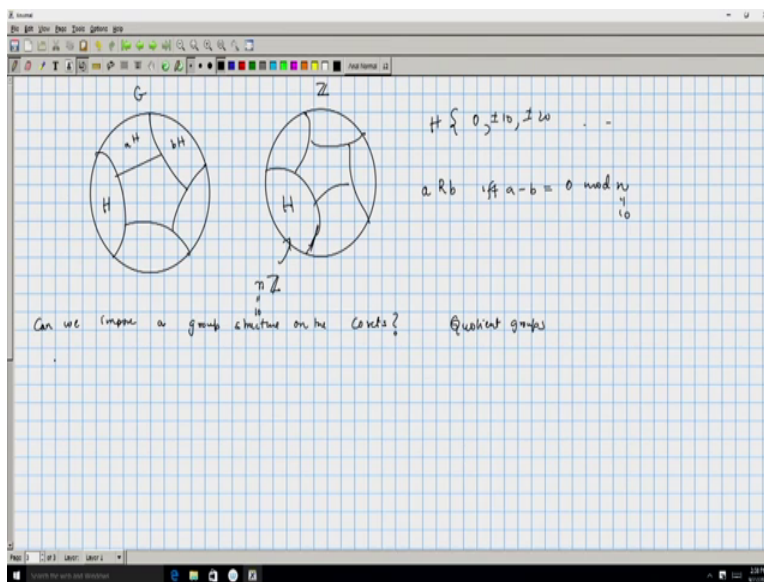 Xournal
File Edit View Page Tools Options Help
Arial Normal 12
G
ℤ
aH
bH
H
H
H { 0, ±10, ±20 . . -
a R b iff a-b = 0 mod n
"
10
nℤ
"
10
Can we impose a group structure on the cosets? Quotient groups
Page 3 of 3 Layer: Layer 1
Search the web and Windows